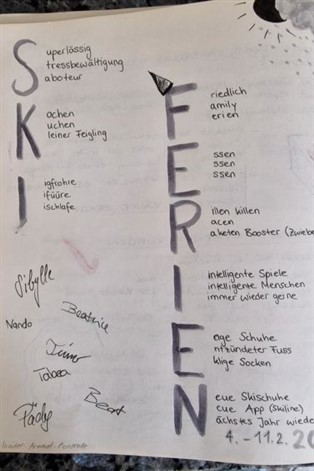 S
uperlössig
tressbewältigung
aboteur
K
ochen
uchen
leiner Feigling
I
igfrohre
ifüüre
ischlafe
F
riedlich
amily
erien
E
ssen
ssen
ssen
R
illen killen
acen
aketen Booster (Zwiebe
I
intelligente Spiele
intelligente Menschen
immer wieder gerne
E
nge Schuhe
ntzündeter Fuss
klige Socken
N
eue Skischuhe
eue App (skiline)
ächstes Jahr wiede
4. - 11.2. 20
Sibylle
Nando
Beatrice
Tabea
Beat
Pädy